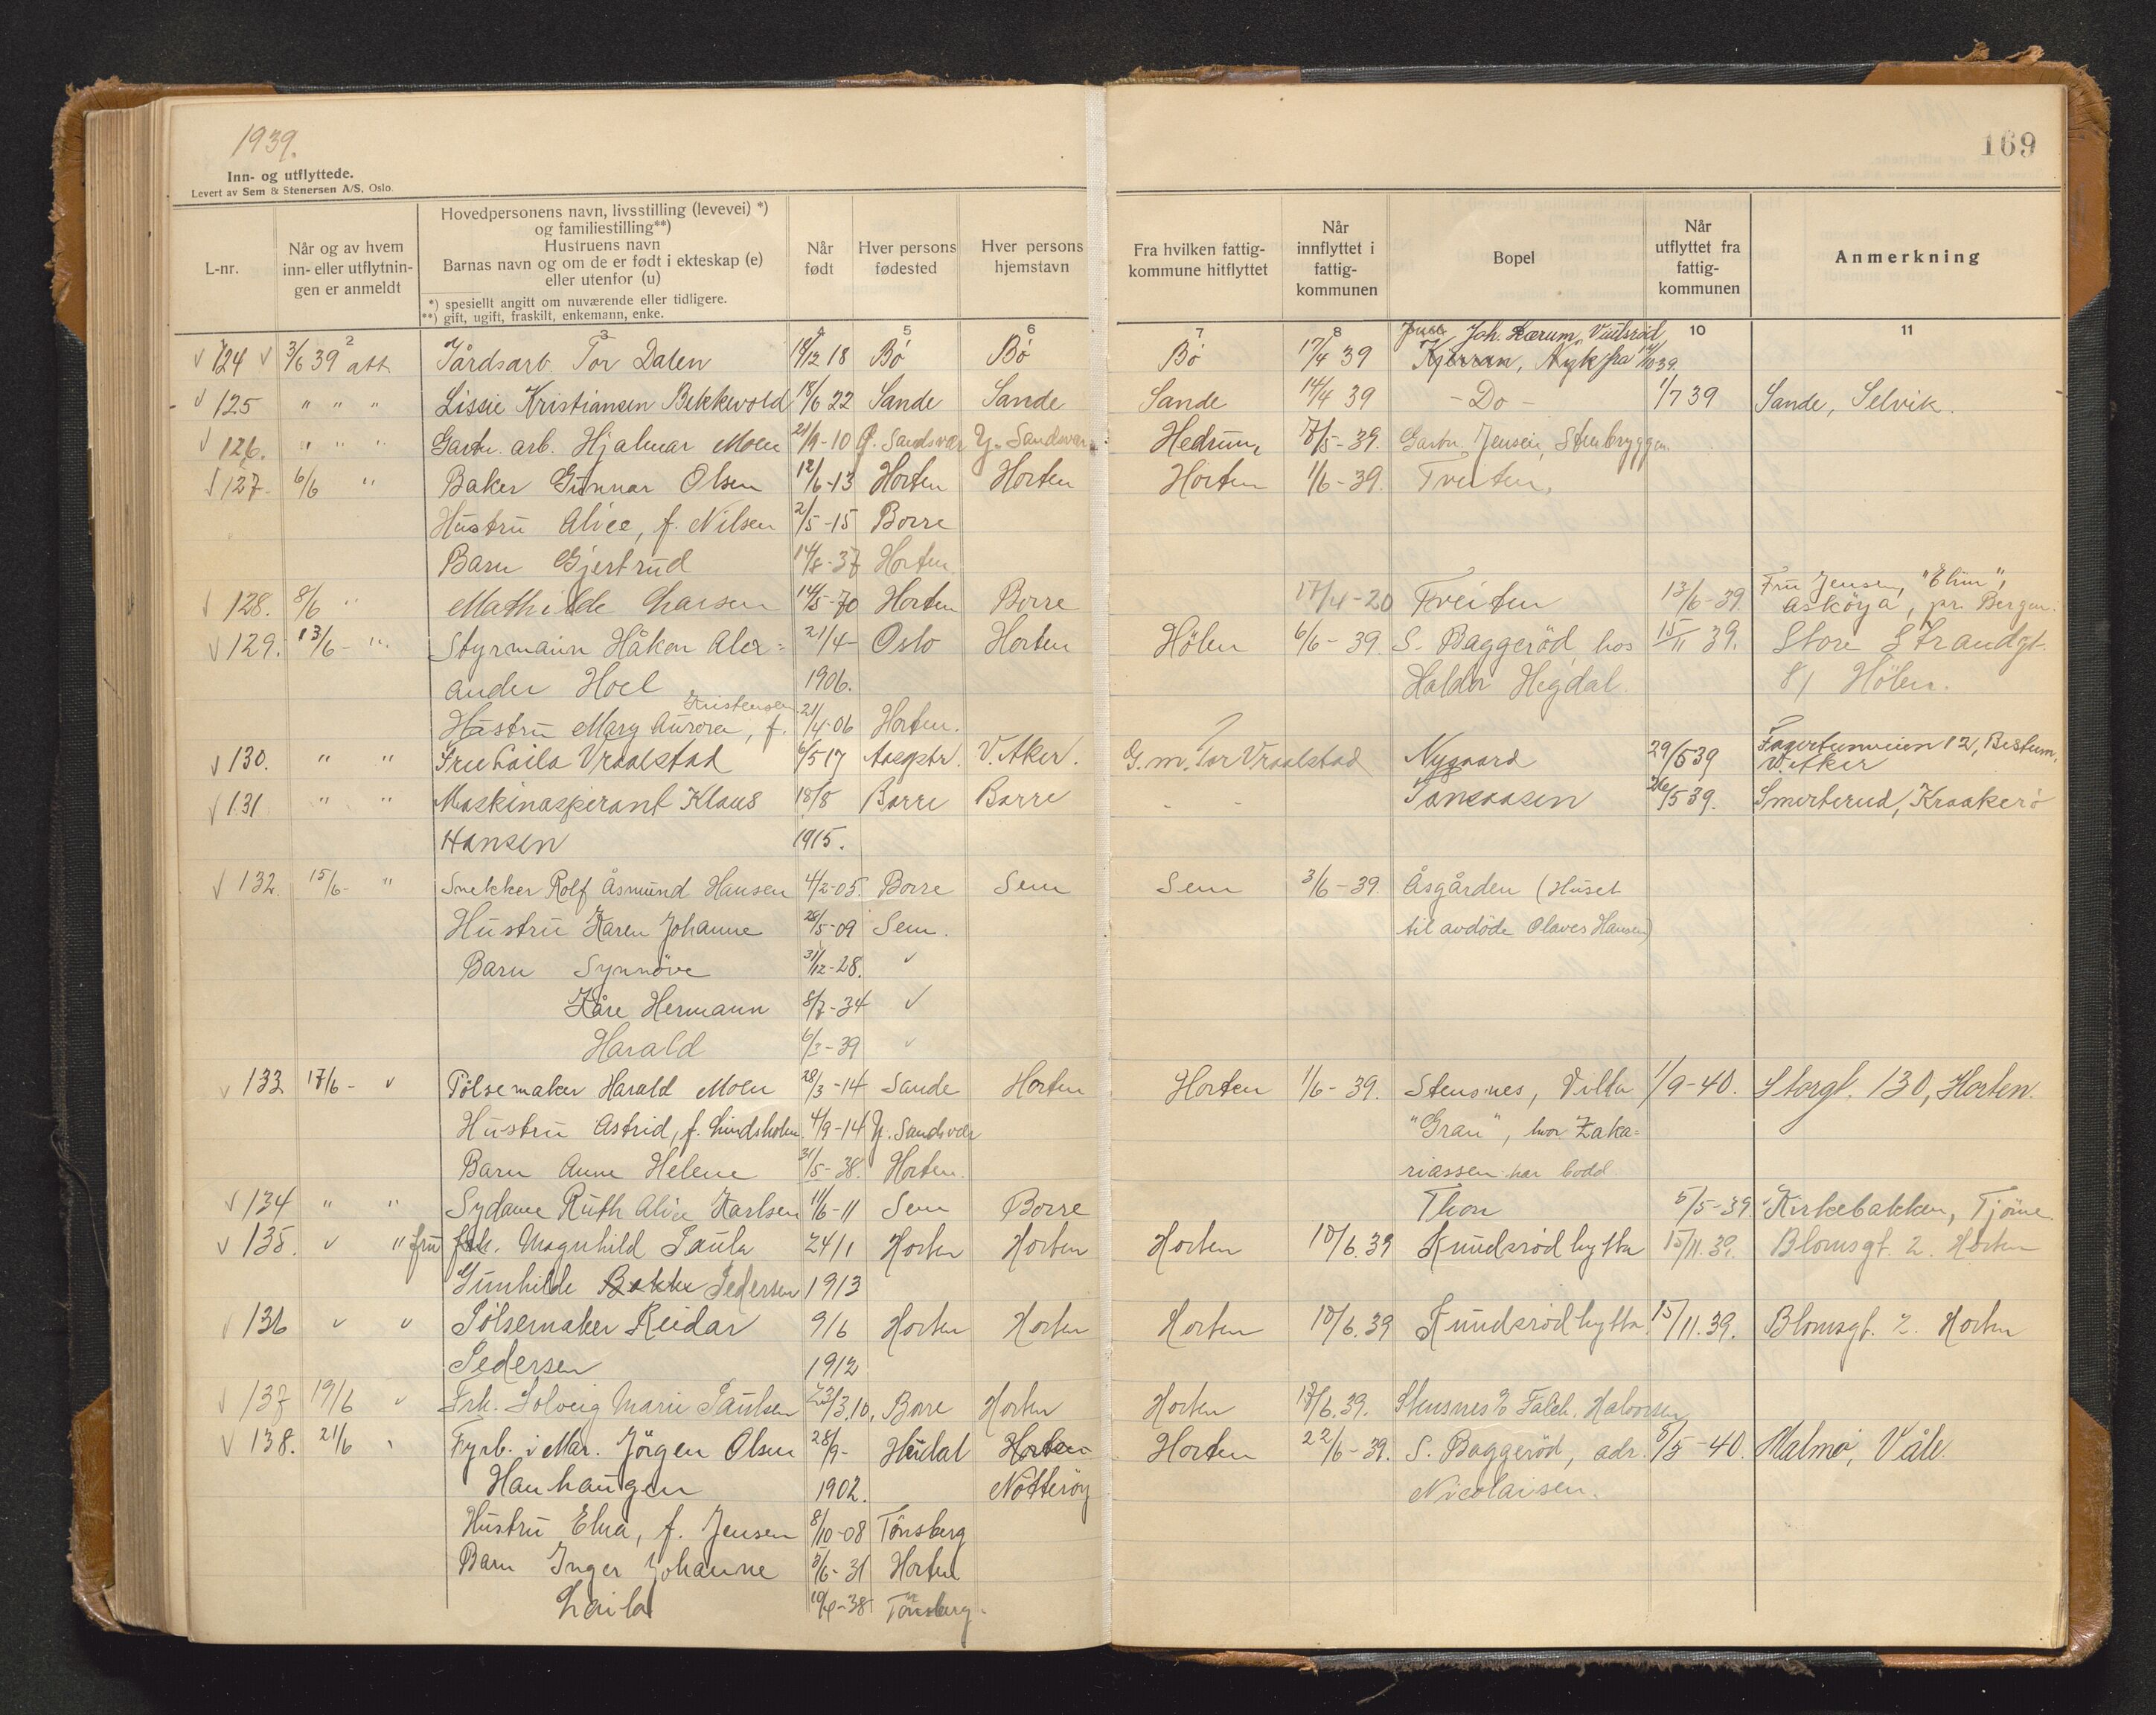 1939.
169
Inn- og utflyttede.
Levert av Sem & Stenersen A/S, Oslo.
L-nr.
Når og av hvem inn- eller utflytnin- gen er anmeldt
Hovedpersonens navn, livsstilling (levevei) *) og familiestilling**) Hustruens navn Barnas navn og om de er født i ekteskap (e) eller utenfor (u)
*) spesiellt angitt om nuværende eller tidligere.
**) gift, ugift, fraskilt, enkemann, enke.
Når født
Hver persons fødested
Hver persons hjemstavn
Fra hvilken fattig- kommune hitflyttet
Når innflyttet i fattig- kommunen
Bopel
Når utflyttet fra fattig- kommunen
Anmerkning
2 3 4 5 6 7 8 10 11
Joh. Lærum, Viulsrød,
124 3/6 39 att. Gårdsarb. Tor Dalen 14/12 18 Bø Bø Bø 17/4 39 Nyk fra
125 " " " Lissie Kristiansen Bekkevold 18/6 22 Sande Sande Sande 14/4 39 - Do - 1/7 39 Sande, Selvik.
126. " " " Gartn. arb. Hjalmar Moen 21/9-10 Y. Sandsvær Y. Sandsvær Hedrum, 7/5-39. Gartn. Jensen, Steinbryggen.
127. 6/6 " Baker Gunnar Olsen 12/6-13 Horten Horten Horten 1/6-39. Treiten.
Hustru Alice, f. Nilsen 2/5-15 Borre
Barn Gjertrud 14/8-37 Horten.
128. 8/6 " Mathilde Larsen 14/5-70 Horten Borre 17/4-20 Freiten 13/6-39. Fru Jensen, "Elim",
Askøya, pr. Bergen.
129. 13/6- " Styrmann Håkon Alex= 21/4- Oslo Horten Hølen 6/6-39. S. Baggerød, hos 15/11 39. Store Strandgt.
ander Hoel 1906. Haldor Hegdal. 81 Hølen.
Kristensen
Hustru Mary Aurora, f. 21/4-06 Horten.
130. " " Fru Laila Vraalstad 6/5 17 Aasgstr. V. Aker. G.m. Tor Vraalstad Nygaard 29/5 39 Fagertunveien 12, Bestum,
V. Aker
131 " " Maskinaspirant Klaus 18/8 Borre Borre - - Tangaasen 26/5 39. Smerterud, Kraakerø
Hansen 1915.
132. 15/6- " Snekker Rolf Åsmund Hansen 4/2-05. Borre Sem Sem 3/6-39. Åsgården (Huset
Hustru Karen Johanne 28/5-09 Sem. til avdøde Olaves Hansen)
Barn Synnøve 31/12-28. "
Kåre Hermann 8/7-34 "
Harald 6/3-39 "
133 17/6- " Pølsemaker Harald Moen 28/3-14 Sande Horten Horten 1/6-39. Stensnes, Villa 1/9-40. Storgt. 130, Horten.
Hustru Astrid, f. Lindsholm. 4/9-14 Y. Sandsvær "Gran", hvor Zaka=
Barn Anne Helene 31/5-38. Horten. riassen har bodd
134 " " Sydame Ruth Alice Karlsen 11/6-11 Sem Borre Thon 5/5-39. Kirkebakken, Tjøme.
135. " " fru Magnhild Paula 24/1 Horten Horten Horten 10/6.39 Knudsrød hytta 15/11.39. Blomsgt. 2. Horten
Gunhilde Bakke Pedersen 1913
136 " " Pølsemaker Reidar 9/6 Horten Horten Horten 10/6.39 Knudsrød hytta 15/11.39. Blomsgt. 2. Horten
Pedersen 1912
137 19/6 " Frk. Solveig Marie Paulsen 23/3.10. Borre Horten Horten 17/6.39. Stensnes Falch. Halvorsen
138. 21/6 " Fyrb. i Mar. Jørgen Olsen 28/9- Heidal Horten Horten 22/6-39. S. Baggerød, adr. 8/5-40. Malmø, Våle.
Hanhaugen 1902. Nøtterøy Nicolaisen.
Hustru Elna, f. Jensen 8/10-08 Tønsberg
Barn Inger Johanne 5/6-31 Horten
Laila 10/4-38 Tønsberg.